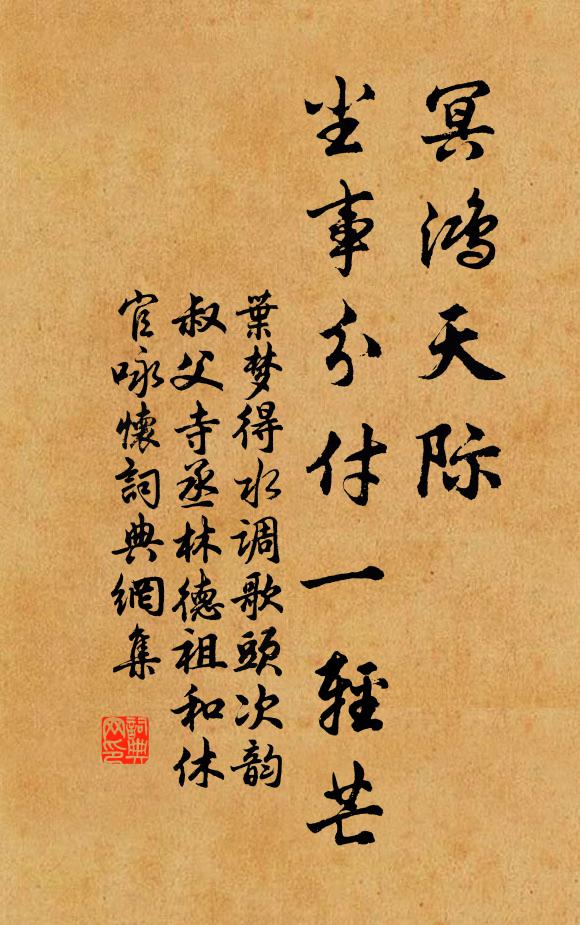 冥鸿天际
尘事分付一轻芒
葉梦得水调歌頭次韵
叔父寺丞林德祖和休
官咏懷詞典網集
詞典网印